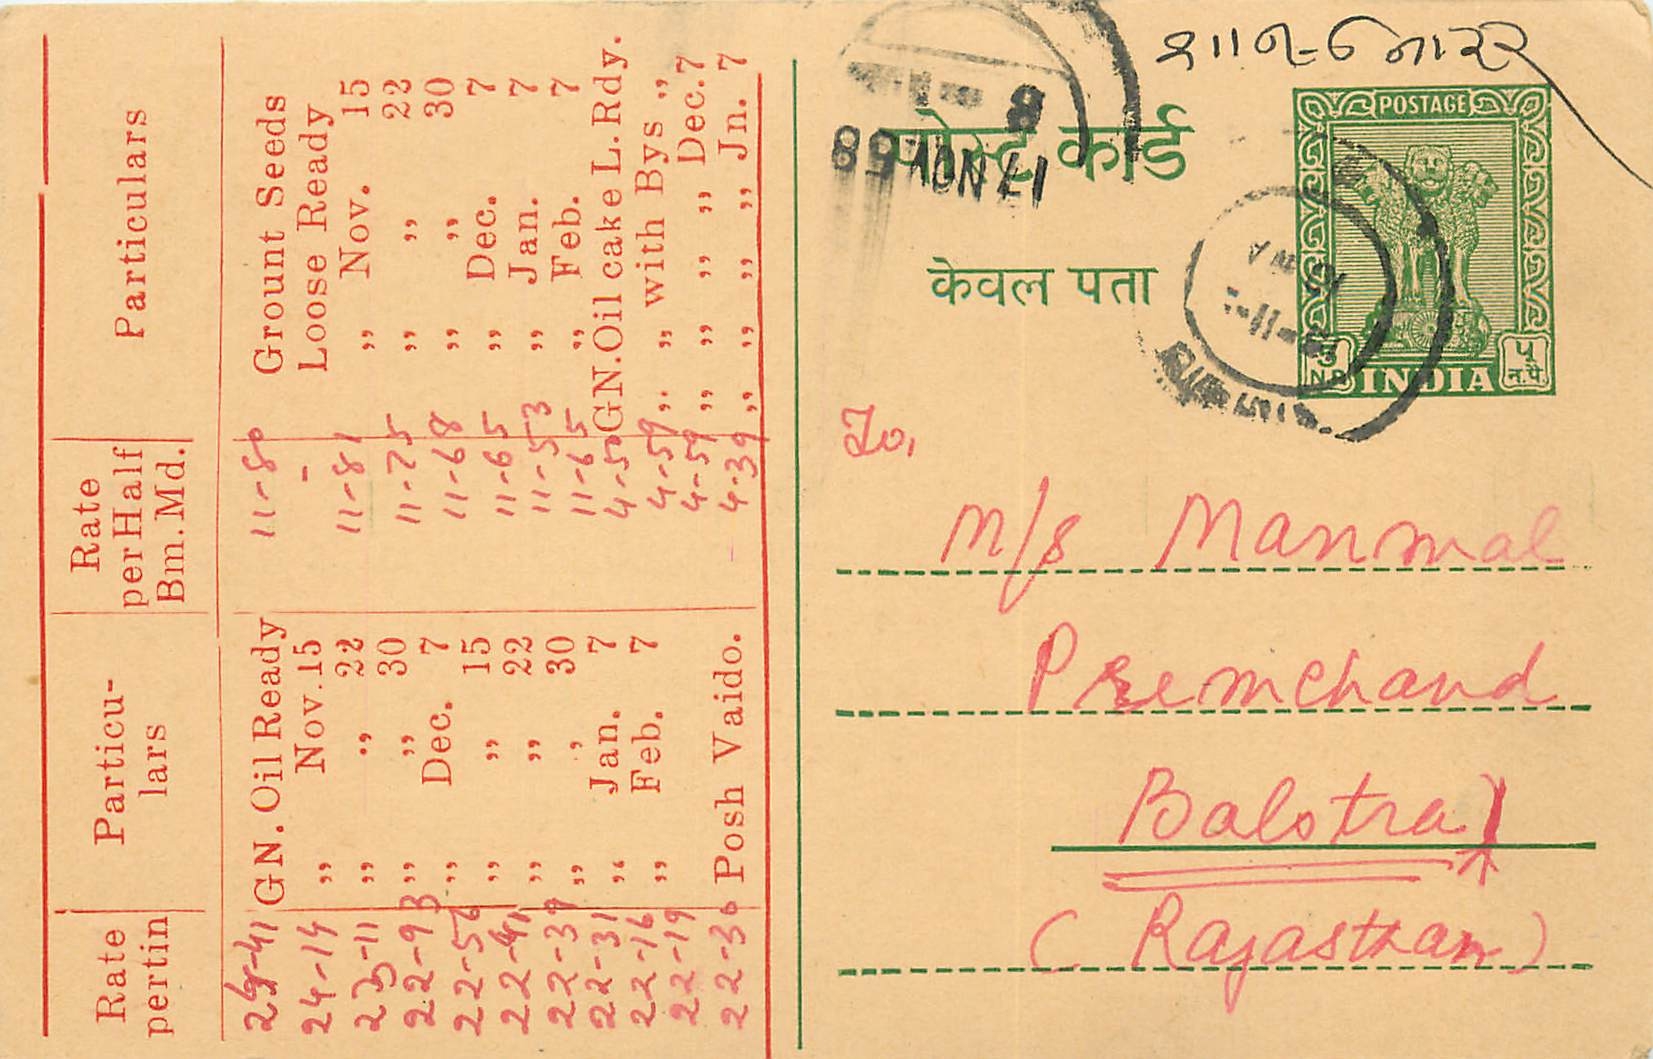 Rate pertin
Particu-
lars
Rate
per Half
Bm. Md.
Particulars
GN. Oil Ready
24-14 ,, Nov. 15
23-11 ,, ,, 22
22-93 ,, ,, 30
22-56 ,, Dec. 7
22-41 ,, ,, 15
22-39 ,, ,, 22
22-31 ,, ,, 30
22-16 ,, Jan. 7
22-19 ,, Feb. 7
22-30 Posh Vaido.
11-80 Grount Seeds
- Loose Ready
11-81 ,, Nov. 15
11-75 ,, ,, 22
11-68 ,, ,, 30
11-65 ,, Dec. 7
11-53 ,, Jan. 7
11-65 ,, Feb. 7
4-50 GN. Oil cake L. Rdy.
4-59 ,, ,, with Bys ,,
4-59 ,, ,, ,, ,, Dec. 7
4-39 ,, ,, ,, ,, Jn. 7
पोस्ट कार्ड
केवल पता
8
17 NOV 58
POSTAGE
INDIA
5
N.P.
५
न.पै.
To,
M/s Manmal
Premchand
Balotra
(Rajasthan)